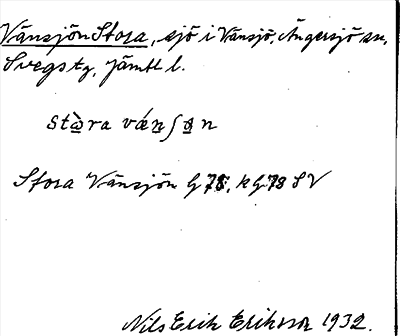 Vänsjön Stora, sjö i Vänsjö, Ängersjö sn,
Svegs tg, Jämtl l.
stɑ̀ra vǽn ʃɑn
Stora Vänsjön G 78, k G 78 SV
Nils Erik Eriksson 1932.